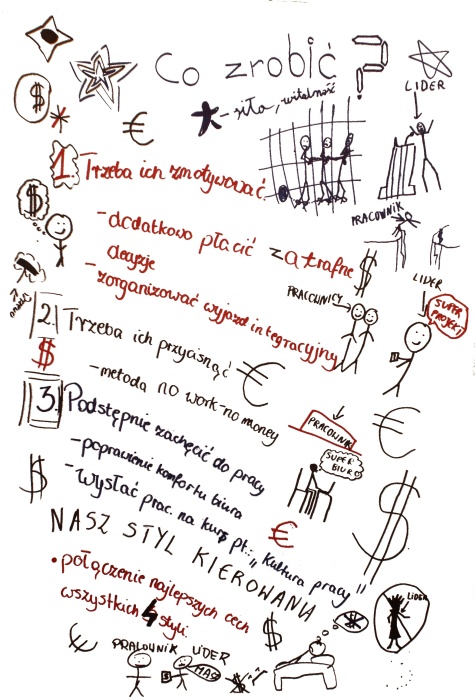 Co zrobić ?
- siła, witalność
LIDER
1. Trzeba ich zmotywować
PRACOWNIK
- dodatkowo płacić za trafne
decyzje
- zorganizować wyjazd integracyjny
LIDER
PRACOWNICY
SUPER
PROJEKT
2. Trzeba ich przycisnąć
- metoda no work - no money
3. Podstępnie zachęcić do pracy
PRACOWNIK
SUPER
BIURO
- poprawienie komfortu biura
- wysłać prac. na kurs pt.: „Kultura pracy"
NASZ STYL KIEROWANIA
• połączenie najlepszych cech
wszystkich 4 styli.
LIDER
PRACOWNIK LIDER